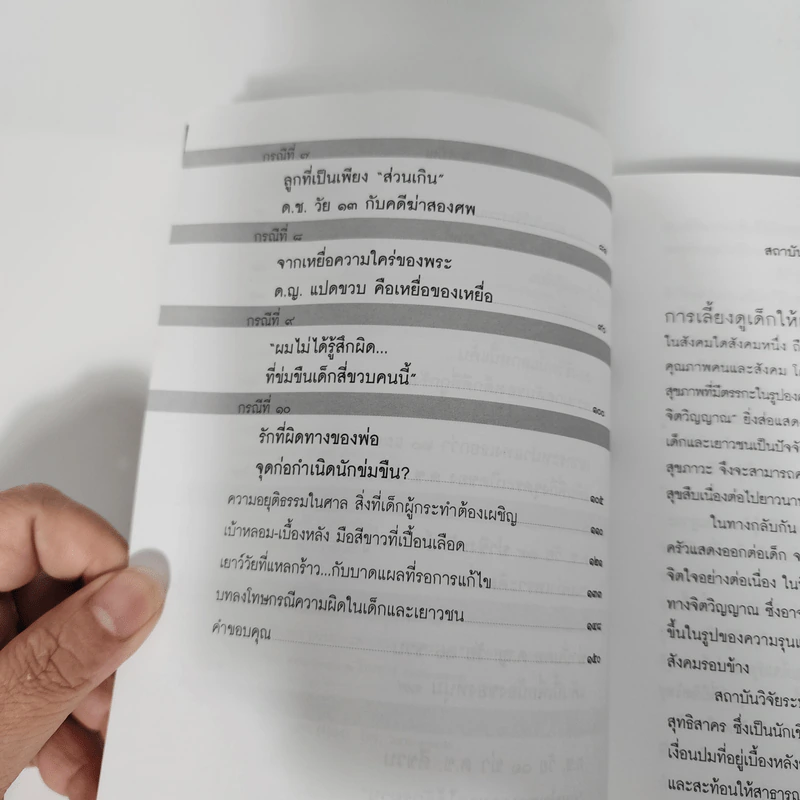 กรณีที่ ๗
ลูกที่เป็นเพียง "ส่วนเกิน"
ด.ช. วัย ๑๓ กับคดีฆ่าสองศพ
กรณีที่ ๘
จากเหยื่อความใคร่ของพระ
ด.ญ. แปดขวบ คือเหยื่อของเหยื่อ
กรณีที่ ๙
"ผมไม่ได้รู้สึกผิด...
ที่ข่มขืนเด็กสี่ขวบคนนี้" ๑๐๐
กรณีที่ ๑๐
รักที่ผิดทางของพ่อ
จุดก่อกำเนิดนักข่มขืน? ๑๐๕
ความอยุติธรรมในศาล สิ่งที่เด็กผู้กระทำต้องเผชิญ ๑๑๑
เบ้าหลอม-เบื้องหลัง มือสีขาวที่เปื้อนเลือด ๑๒๑
เยาว์วัยที่แหลกร้าว...กับบาดแผลที่รอการแก้ไข ๑๓๓
บทลงโทษกรณีความผิดในเด็กและเยาวชน ๑๔๘
คำขอบคุณ ๑๕๐
สถาบัน
การเลี้ยงดูเด็กให้
ในสังคมใดสังคมหนึ่ง
คุณภาพคนและสังคม
สุขภาพที่มีตรรกะในรูปของ
จิตวิญญาณ" ยิ่งส่อแสด
เด็กและเยาวชนเป็นปัจจั
สุขภาวะ จึงจะสามารถ
สุขสืบเนื่องต่อไปยาวนา
ในทางกลับกัน
ครัวแสดงออกต่อเด็ก
จิตใจอย่างต่อเนื่อง ใน
ทางจิตวิญญาณ ซึ่งอาจ
ขึ้นในรูปของความรุนแ
สังคมรอบข้าง
สถาบันวิจัยระบ
สุทธิสาคร ซึ่งเป็นนักเขี
เงื่อนปมที่อยู่เบื้องหลัง
และสะท้อนให้สาธารณ